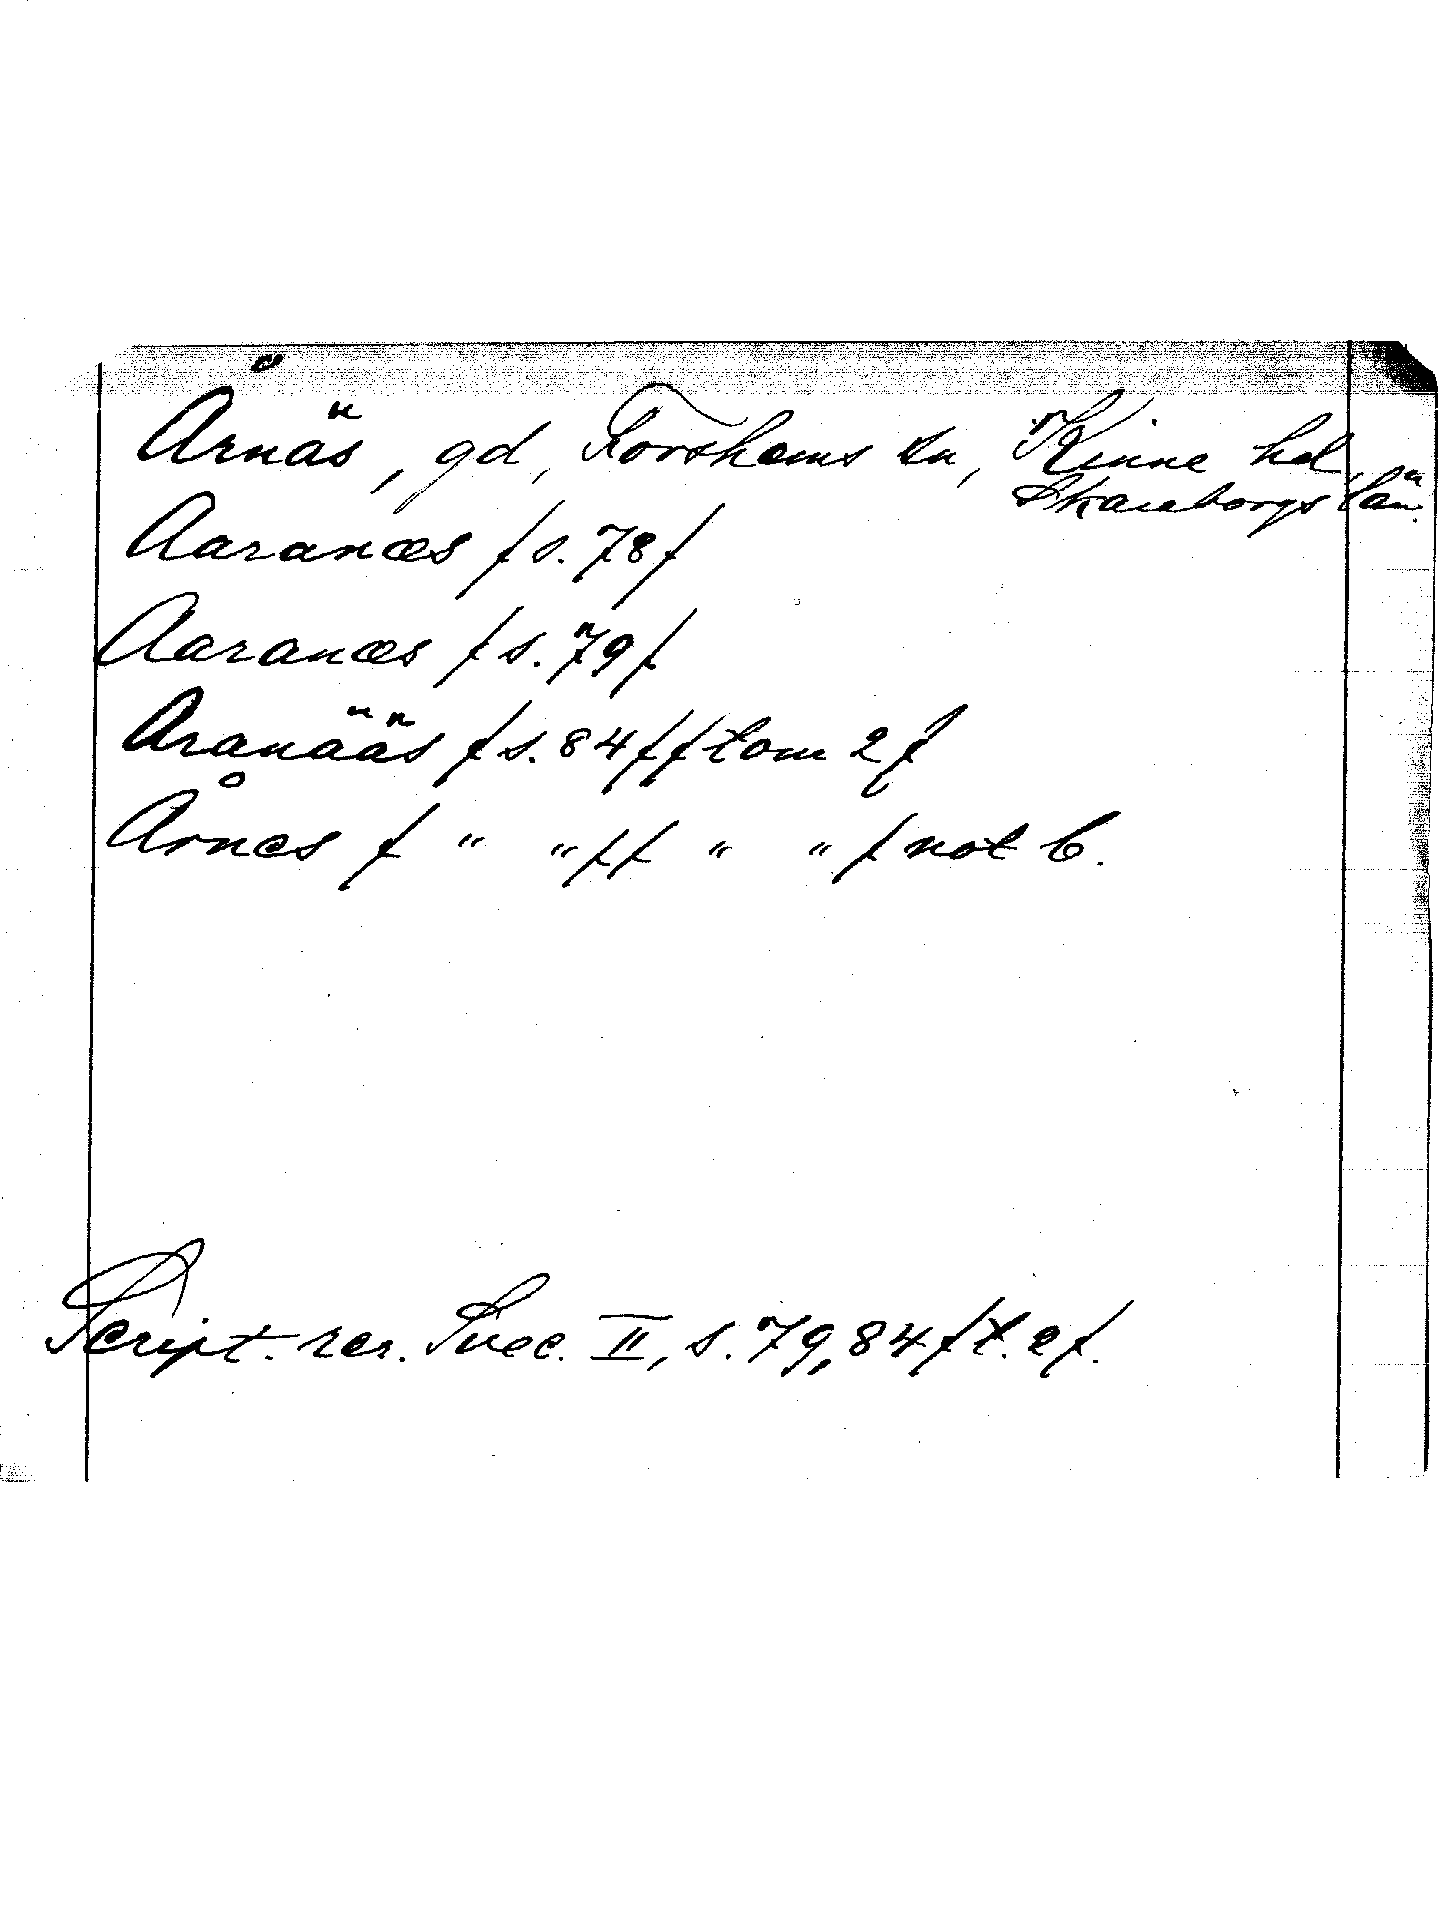 Årnäs, gd, Forshems sn, Kinne hd,
Skaraborgs län.
Aaranæs / s. 78 /
Aaranæs / s. 79 /
Aranääs / s. 84 / / tom 2 /
Årnes / " " / / " " / not b.
Script. rer. Svec. II, s. 79, 84 / t. 2 /.